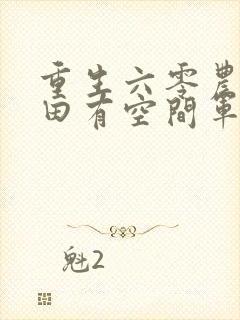 重生六零農
田有空間軍
魁2